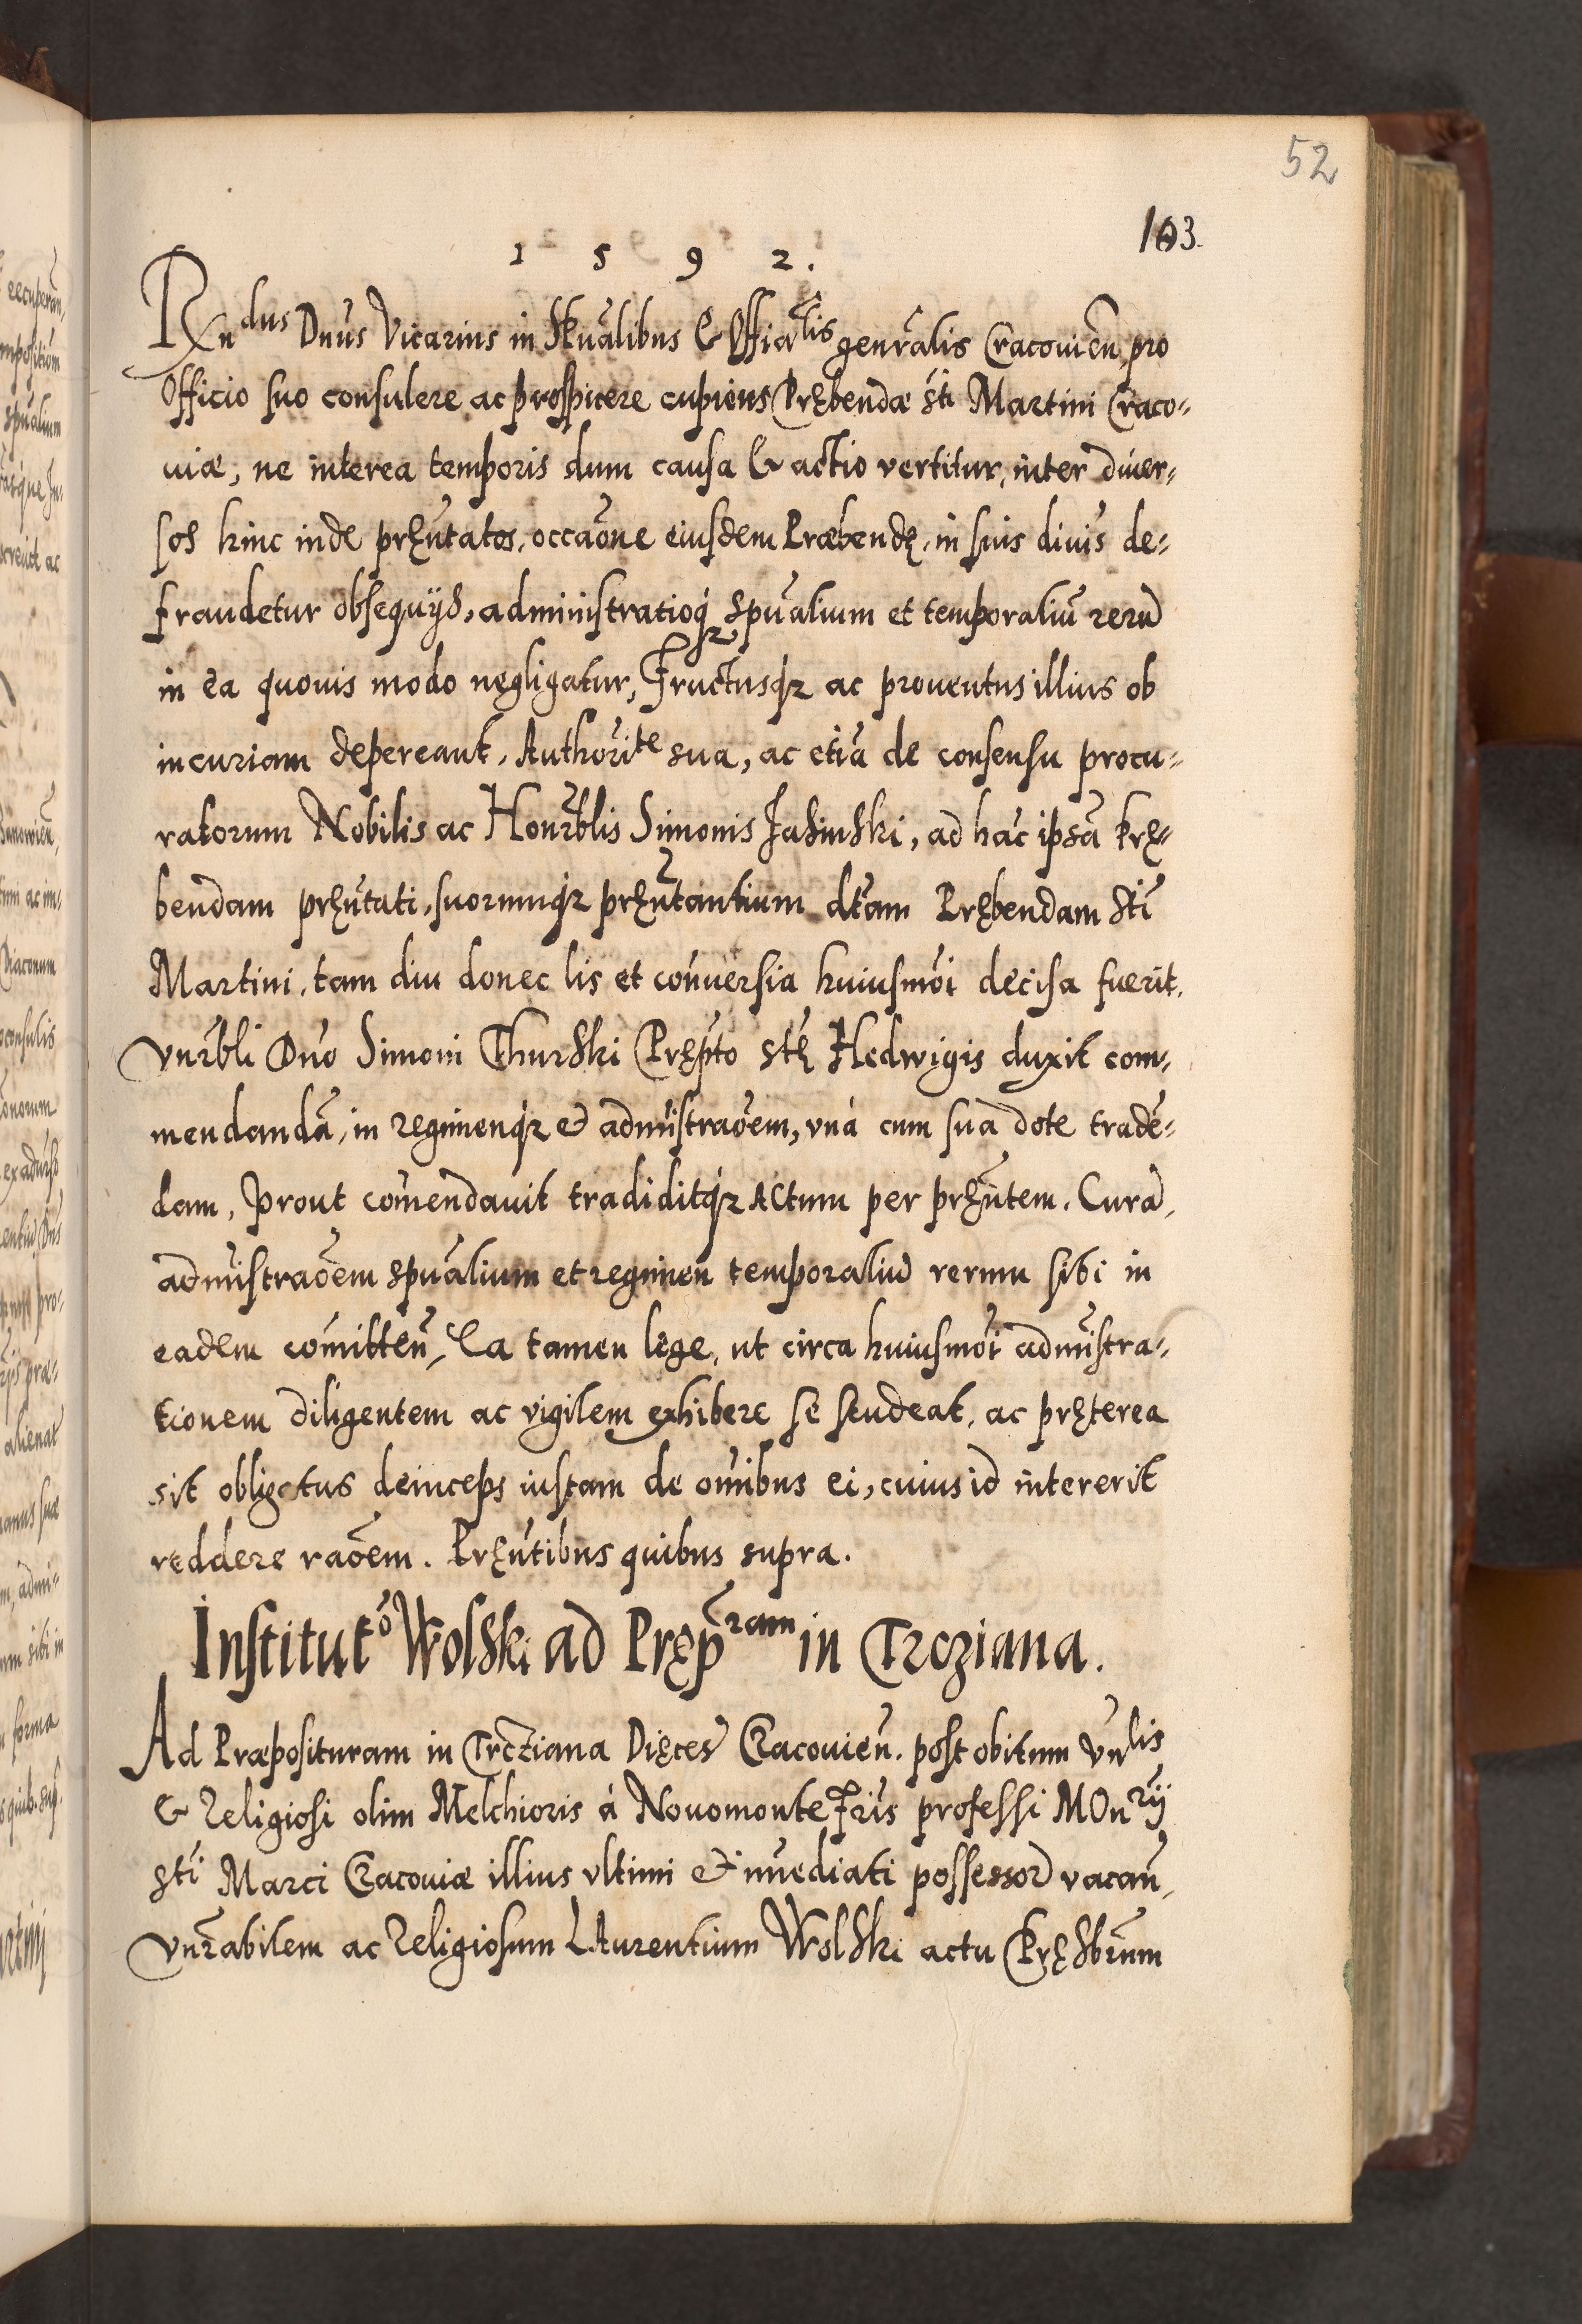 52
103.
1 5 9 2.
Rndus Dnus Vicarius in Spualibus & Offialis genralis Cracouien, pro
Officio suo consulere ac prospicere cupiens Prębendæ Sti Martini Craco-
uiæ, ne interea temporis dum causa & actio vertitur, inter diuer-
sos hinc inde pręntatos, occaone eiusdem Præbendę, in suis diuis de-
fraudetur obsequijs, administratioq spualium et temporaliu reru
in ea quouis modo negligatur, Fructusq ac prouentus illius ob
incuriam depereant, Authorite sua, ac etia de consensu procu-
ratorum Nobilis ac Honrblis Simonis Jasinski, ad hac ipsa Prę-
bendam pręntati, suorumq pręntantium dtam Prębendam Sti
Martini, tam diu donec lis et conuersia huiusmoi decisa fuerit.
Vnrbli Dno Simoni Thurski Prępto Stę Hedwigis duxit com-
mendanda, in regimenq & admistraoem, vná cum sua dote trade-
dam, Prout comendauit tradiditq Actum per pręntem. Cura,
admistraoem spualium et regimen temporaliu rerum sibi in
eadem comitten, Ea tamen lege, ut circa huiusmoi admistra-
tionem diligentem ac vigilem exhibere se studeat, ac pręterea
sit obligatus deinceps iustam de omibus ei, cuius id intererit
reddere raoem. Pręntibus quibus supra.
Instituto Wolski ad Prępram in Trcziana.
Ad Præposituram in Trcziana Dięces Cracouien. post obitum Vnlis
& Religiosi olim Melchioris á Nouomonte Fris professi Monrij
Sti Marci Cracouiæ illius vltimi & immediati possessor vacan,
Vnrabilem ac Religiosum Laurentium Wolski actu Pręsbrum